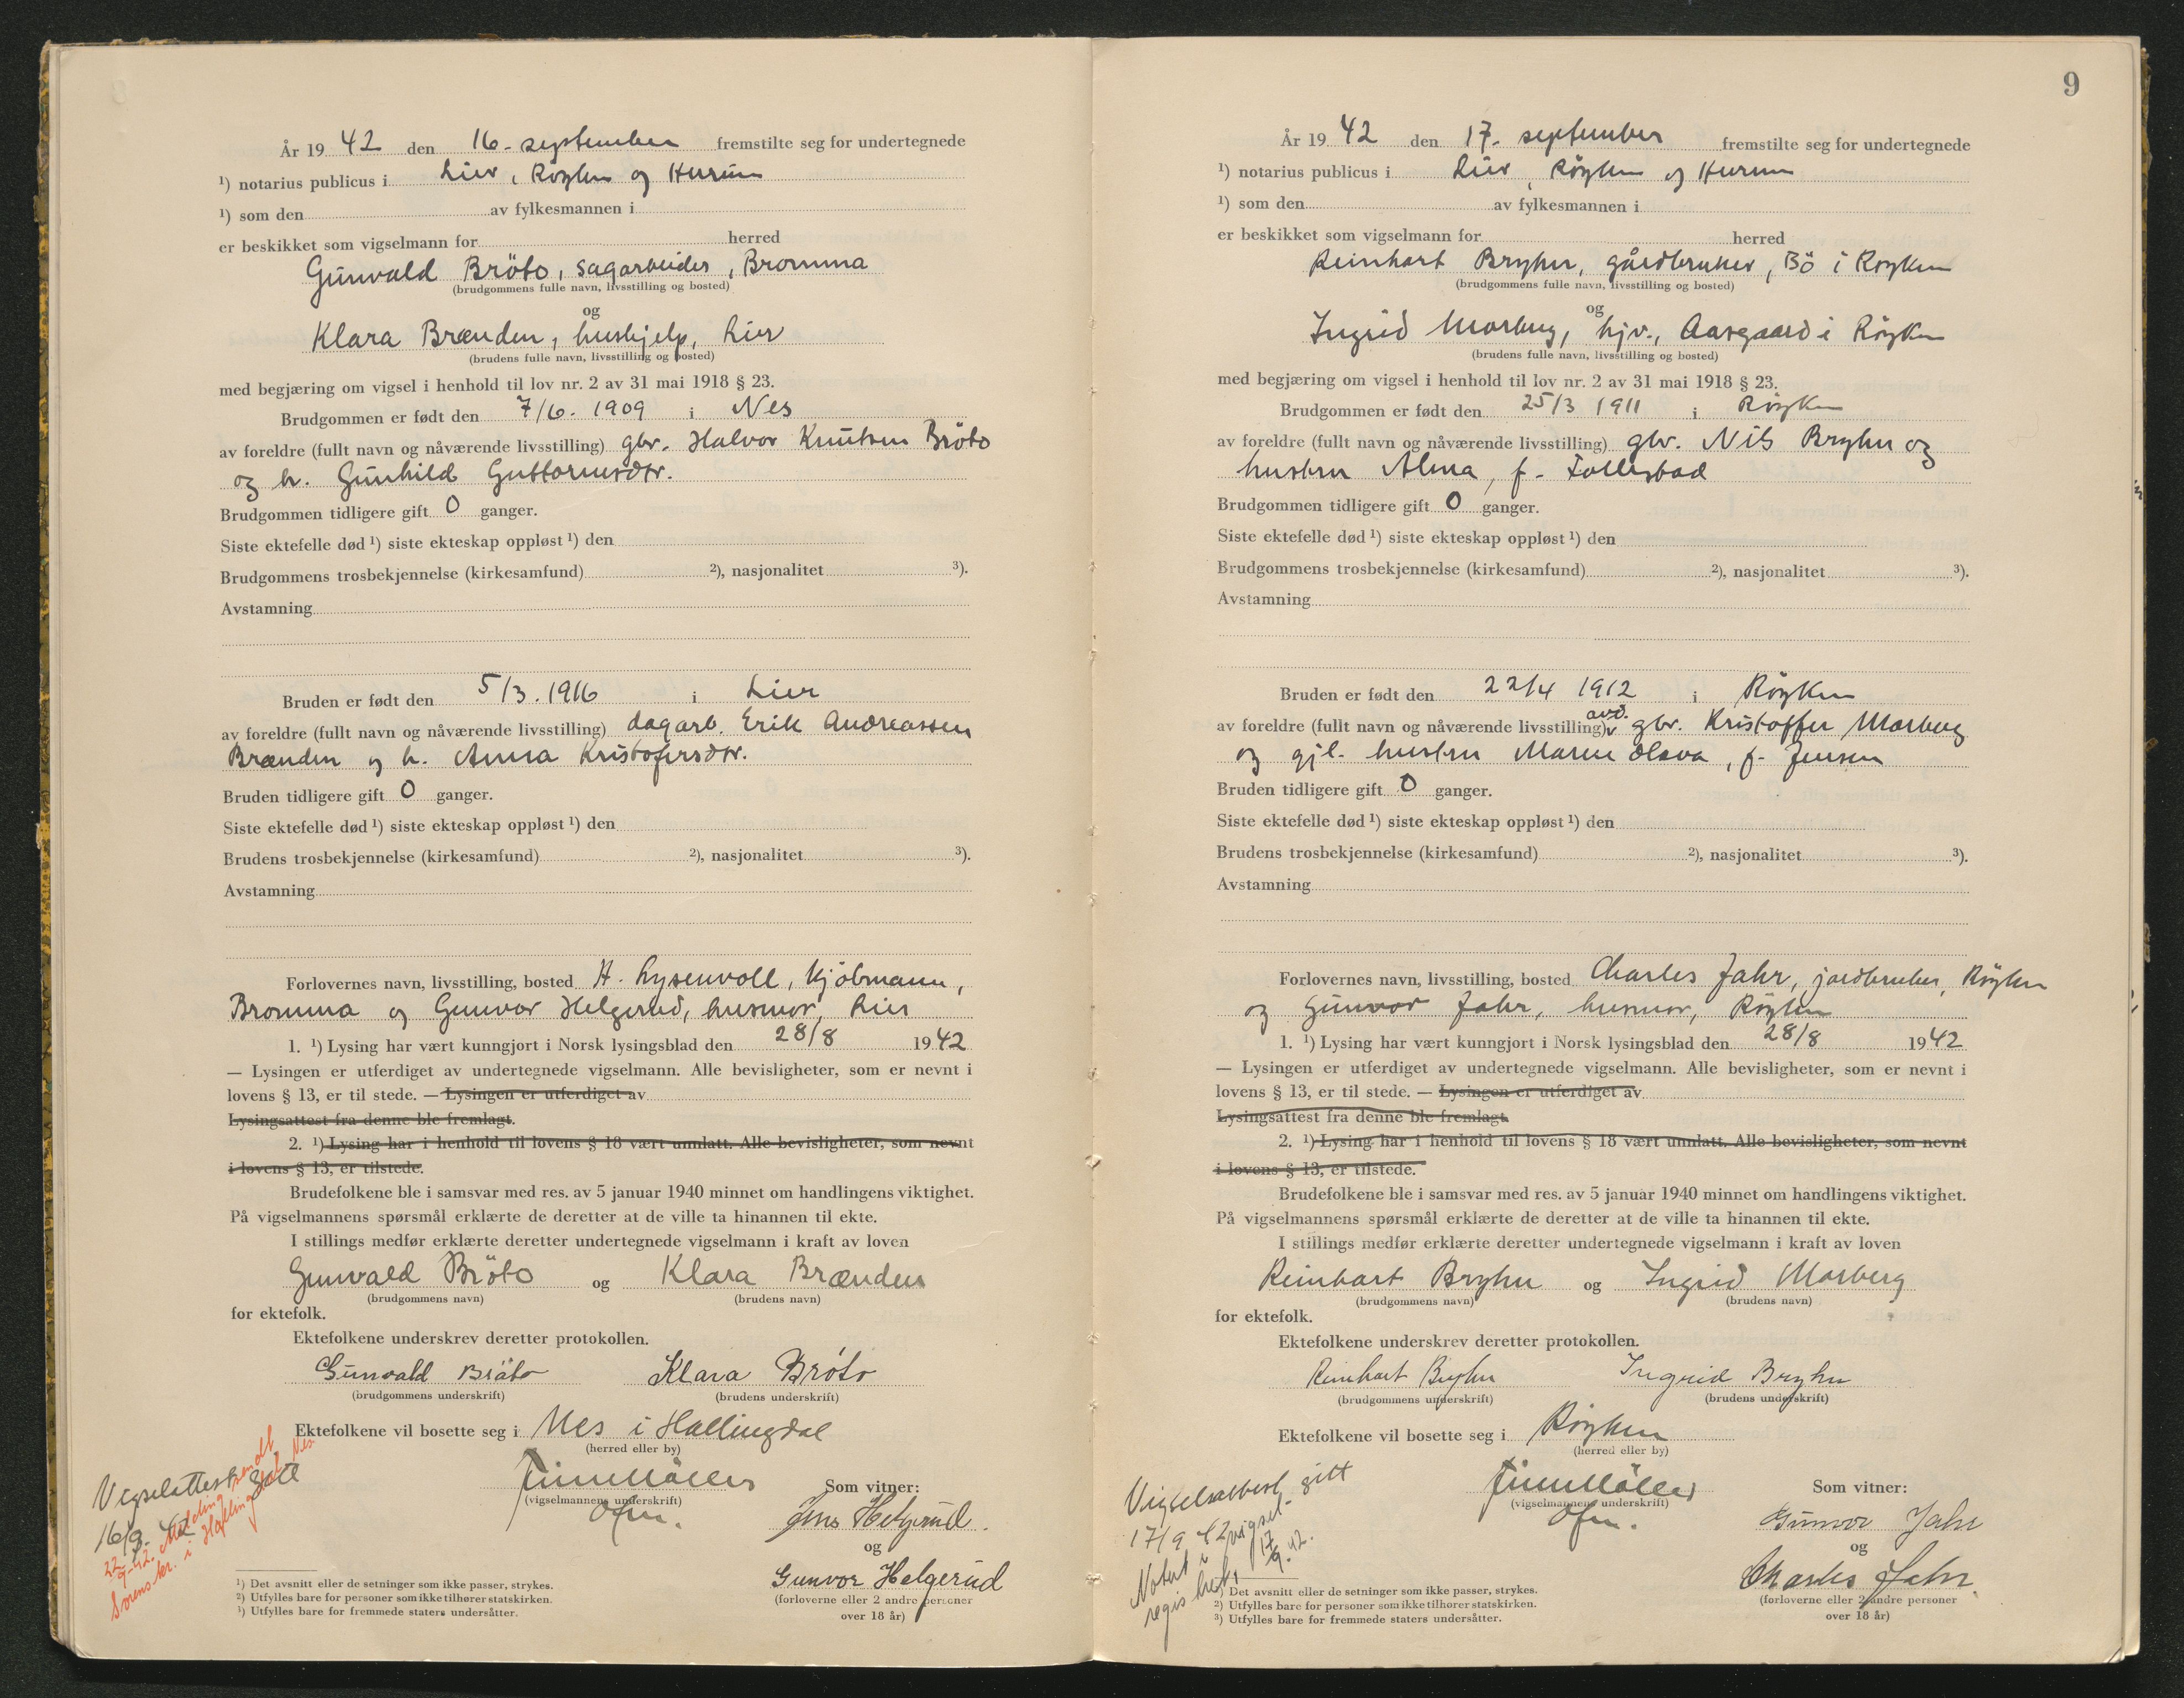 År 19 42 den 16. september fremstilte seg for undertegnede
¹) notarius publicus i Lier, Røyken og Hurum
¹) som den av fylkesmannen i
er beskikket som vigselmann for herred
Gunvald Bröto, sagarbeider, Bromma
(brudgommens fulle navn, livsstilling og bosted)
og
Klara Brænden, hushjelp, Lier
(brudens fulle navn, livsstilling og bosted)
med begjæring om vigsel i henhold til lov nr. 2 av 31 mai 1918 § 23.
Brudgommen er født den 7/6. 1909 i Nes
av foreldre (fullt navn og nåværende livsstilling) gbr. Halvor Knutsen Bröto
og h. Gunhild Guttormsdtr.
Brudgommen tidligere gift 0 ganger.
Siste ektefelle død ¹) siste ekteskap oppløst ¹) den
Brudgommens trosbekjennelse (kirkesamfund) ²), nasjonalitet ³).
Avstamning
Bruden er født den 5/3. 1916 i Lier
av foreldre (fullt navn og nåværende livsstilling) dagarb. Erik Andreassen
Brænden og h. Anna Kristofersdtr.
Bruden tidligere gift 0 ganger.
Siste ektefelle død ¹) siste ekteskap oppløst ¹) den
Brudens trosbekjennelse (kirkesamfund) ²), nasjonalitet ³).
Avstamning
Forlovernes navn, livsstilling, bosted H. Lysenvoll, kjöbmann,
Bromma og Gunvor Helgerud, husmor, Lier
1. ¹) Lysing har vært kunngjort i Norsk lysingsblad den 28/8 1942
— Lysingen er utferdiget av undertegnede vigselmann. Alle bevisligheter, som er nevnt i
lovens § 13, er til stede. — Lysingen er utferdiget av
Lysingsattest fra denne ble fremlagt.
2. ¹) Lysing har i henhold til lovens § 18 vært unnlatt. Alle bevisligheter, som nevnt
i lovens § 13, er tilstede.
Brudefolkene ble i samsvar med res. av 5 januar 1940 minnet om handlingens viktighet.
På vigselmannens spørsmål erklærte de deretter at de ville ta hinannen til ekte.
I stillings medfør erklærte deretter undertegnede vigselmann i kraft av loven
Gunvald Bröto og Klara Brænden
(brudgommens navn) (brudens navn)
for ektefolk.
Ektefolkene underskrev deretter protokollen.
Gunvald Bröto Klara Bröto
(brudgommens underskrift) (brudens underskrift)
Ektefolkene vil bosette seg i Nes i Hallingdal
(herred eller by)
(vigselmannens underskrift)
Som vitner:
Jens Helgerud.
og
Gunvor Helgerud
(forloverne eller 2 andre personer
over 18 år)
Vigselattest gitt
16/9. 42
22/9-42. Melding sendt
Sorenskr. i Hallingdal, Nes
¹) Det avsnitt eller de setninger som ikke passer, strykes.
²) Utfylles bare for personer som ikke tilhører statskirken.
³) Utfylles bare for fremmede staters undersåtter.
9
År 19 42 den 17. september fremstilte seg for undertegnede
¹) notarius publicus i Lier, Røyken og Hurum
¹) som den av fylkesmannen i
er beskikket som vigselmann for herred
Reinhart Bryhn, gårdbruker, Bö i Røyken
(brudgommens fulle navn, livsstilling og bosted)
og
Ingrid Morberg, hjv., Aasgaard i Röyken
(brudens fulle navn, livsstilling og bosted)
med begjæring om vigsel i henhold til lov nr. 2 av 31 mai 1918 § 23.
Brudgommen er født den 25/3 1911 i Röyken
av foreldre (fullt navn og nåværende livsstilling) gbr. Nils Bryhn og
hustru Alma, f. Follestad
Brudgommen tidligere gift 0 ganger.
Siste ektefelle død ¹) siste ekteskap oppløst ¹) den
Brudgommens trosbekjennelse (kirkesamfund) ²), nasjonalitet ³).
Avstamning
Bruden er født den 22/4 1912 i Röyken
av foreldre (fullt navn og nåværende livsstilling) avd. gbr. Kristoffer Morberg
og gjl. hustru Maren Olava, f. Jensen
Bruden tidligere gift 0 ganger.
Siste ektefelle død ¹) siste ekteskap oppløst ¹) den
Brudens trosbekjennelse (kirkesamfund) ²), nasjonalitet ³).
Avstamning
Forlovernes navn, livsstilling, bosted Charles Jahr, jordbruker, Röyken
og Gunvor Jahr, husmor, Röyken
1. ¹) Lysing har vært kunngjort i Norsk lysingsblad den 28/8 1942
— Lysingen er utferdiget av undertegnede vigselmann. Alle bevisligheter, som er nevnt i
lovens § 13, er til stede. — Lysingen er utferdiget av
Lysingsattest fra denne ble fremlagt.
2. ¹) Lysing har i henhold til lovens § 18 vært unnlatt. Alle bevisligheter, som nevnt
i lovens § 13, er tilstede.
Brudefolkene ble i samsvar med res. av 5 januar 1940 minnet om handlingens viktighet.
På vigselmannens spørsmål erklærte de deretter at de ville ta hinannen til ekte.
I stillings medfør erklærte deretter undertegnede vigselmann i kraft av loven
Reinhart Bryhn og Ingrid Morberg
(brudgommens navn) (brudens navn)
for ektefolk.
Ektefolkene underskrev deretter protokollen.
Reinhart Bryhn Ingrid Bryhn
(brudgommens underskrift) (brudens underskrift)
Ektefolkene vil bosette seg i Röyken
(herred eller by)
(vigselmannens underskrift)
Som vitner:
Gunvor Jahr
og
Charles Jahr.
(forloverne eller 2 andre personer
over 18 år)
Vigselsattest gitt
17/9 42
Notert i vigsel
regis 17/9.42.
¹) Det avsnitt eller de setninger som ikke passer, strykes.
²) Utfylles bare for personer som ikke tilhører statskirken.
³) Utfylles bare for fremmede staters undersåtter.